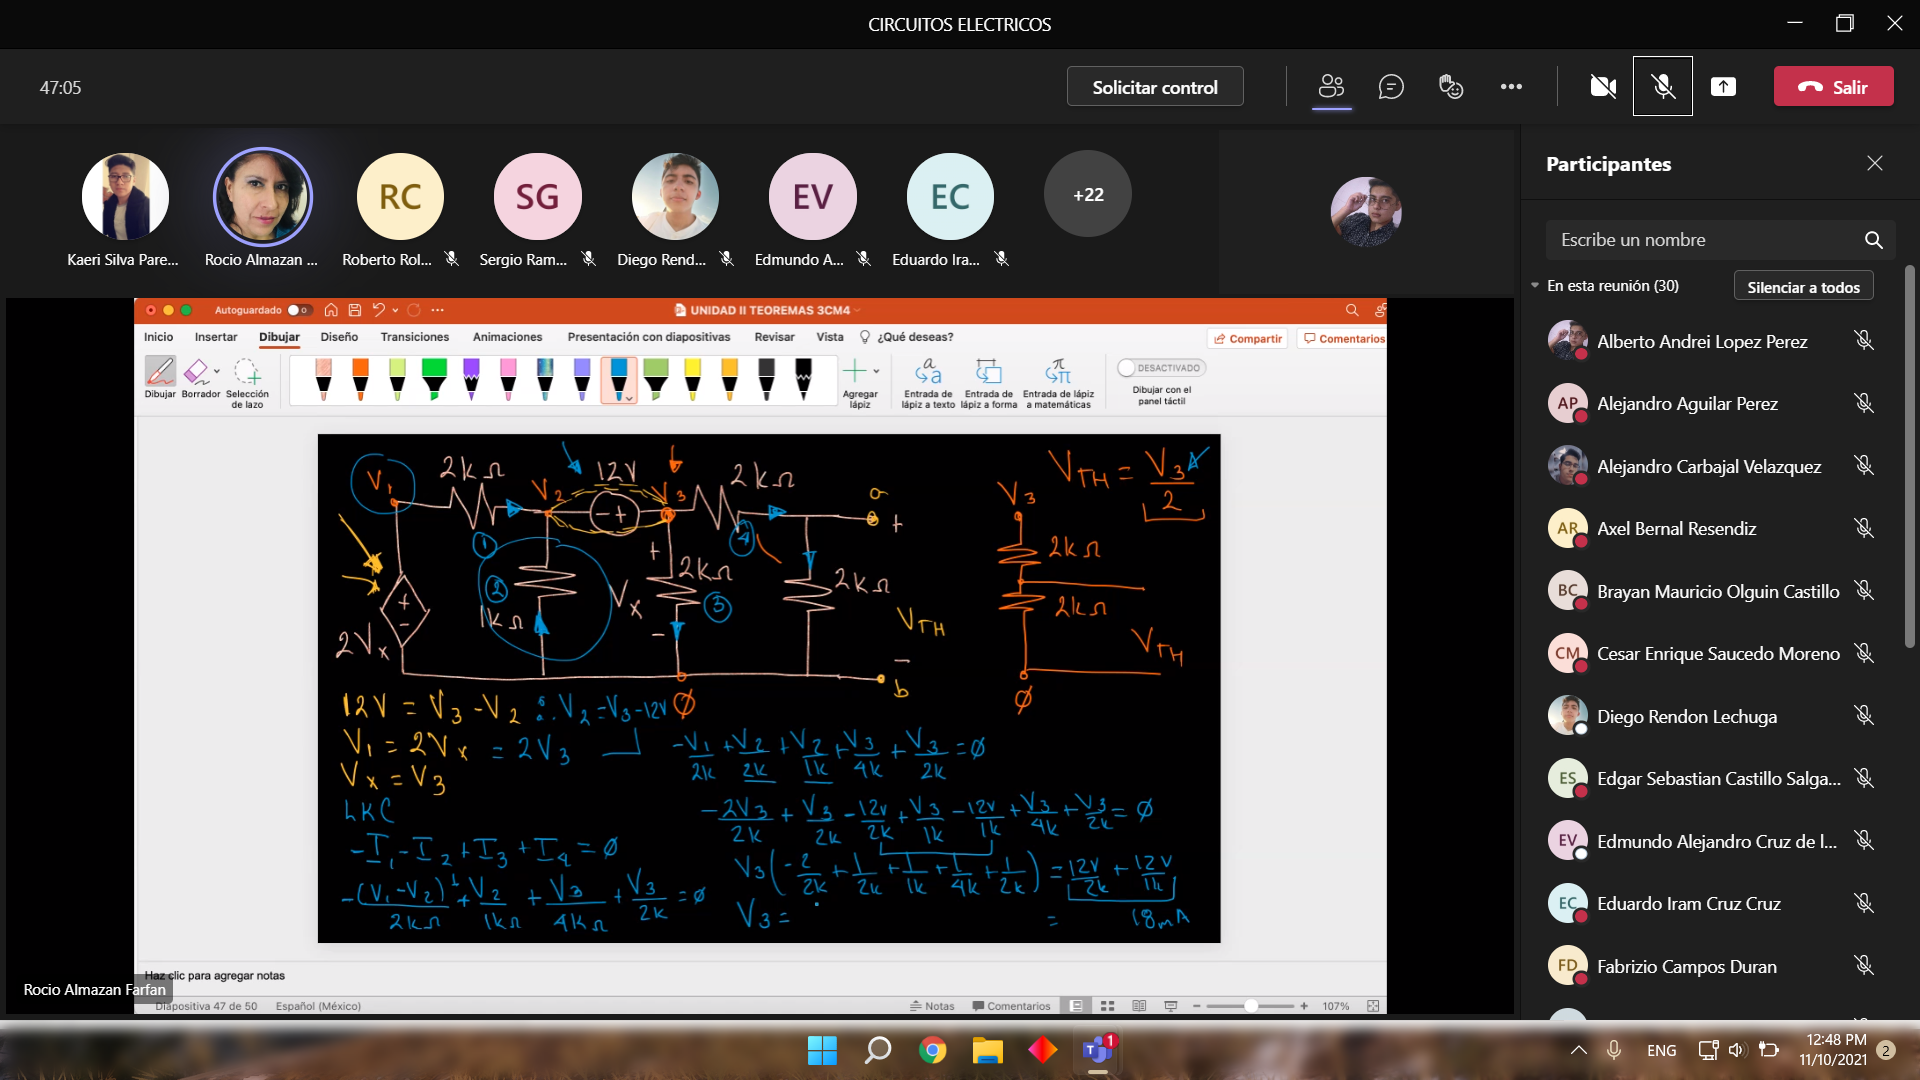 CIRCUITOS ELECTRICOS
47:05
Solicitar control
Salir
RC
SG
EV
EC
+22
Kaeri Silva Pare...
Rocio Almazan ...
Roberto Rol...
Sergio Ram...
Diego Rend...
Edmundo A...
Eduardo Ira...
Autoguardado
UNIDAD II TEOREMAS 3CM4
Inicio
Insertar
Dibujar
Diseño
Transiciones
Animaciones
Presentación con diapositivas
Revisar
Vista
¿Qué deseas?
Compartir
Comentarios
Dibujar
Borrador
Selección
de lazo
Agregar
lápiz
Entrada de
lápiz a texto
Entrada de
lápiz a forma
Entrada de lápiz
a matemáticas
DESACTIVADO
Dibujar con el
panel táctil
V1
2kΩ
V2
12V
V3
2kΩ
a
+
- +
1
2
1kΩ
+
Vx
-
2kΩ
3
4
2kΩ
VTH
-
b
+
-
2Vx
Ø
V3
2kΩ
2kΩ
VTH
Ø
VTH = V3/2
12V = V3 - V2 ∴ V2 = V3 - 12V
V1 = 2Vx = 2V3
Vx = V3
LKC
-I1 - I2 + I3 + I4 = Ø
-(V1 - V2)/2kΩ + V2/1kΩ + V3/4kΩ + V3/2k = Ø
-V1/2k + V2/2k + V2/1k + V3/4k + V3/2k = Ø
-2V3/2k + V3/2k - 12V/2k + V3/1k - 12V/1k + V3/4k + V3/2k = Ø
V3(-2/2k + 1/2k + 1/1k + 1/4k + 1/2k) = 12V/2k + 12V/1k
V3 = = 18mA
Haz clic para agregar notas
Rocio Almazan Farfan
Diapositiva 47 de 50
Español (México)
Notas
Comentarios
107%
Participantes
Escribe un nombre
En esta reunión (30)
Silenciar a todos
Alberto Andrei Lopez Perez
AP
Alejandro Aguilar Perez
Alejandro Carbajal Velazquez
AR
Axel Bernal Resendiz
BC
Brayan Mauricio Olguin Castillo
CM
Cesar Enrique Saucedo Moreno
Diego Rendon Lechuga
ES
Edgar Sebastian Castillo Salga...
EV
Edmundo Alejandro Cruz de l...
EC
Eduardo Iram Cruz Cruz
FD
Fabrizio Campos Duran
1
ENG
12:48 PM
11/10/2021
2